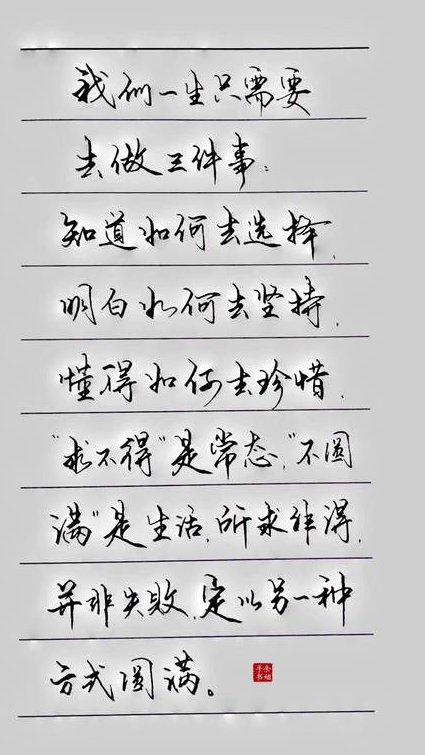 我们一生只需要
去做三件事:
知道如何去选择,
明白如何去坚持,
懂得如何去珍惜,
"求不得"是常态,"不圆
满"是生活,所求难得,
并非失败,定以另一种
方式圆满。